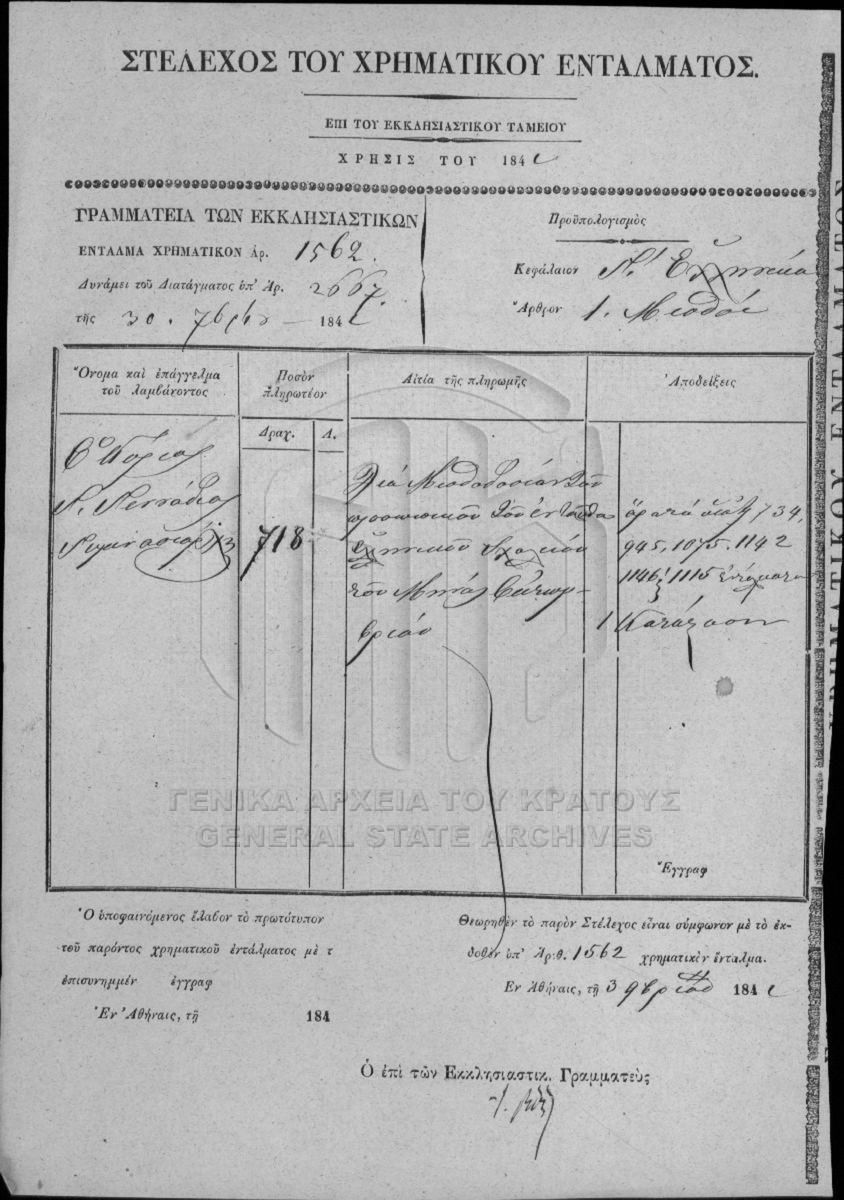 ΣΤΕΛΕΧΟΣ ΤΟΥ ΧΡΗΜΑΤΙΚΟΥ ΕΝΤΑΛΜΑΤΟΣ.
ΕΠΙ ΤΟΥ ΕΚΚΛΗΣΙΑΣΤΙΚΟΥ ΤΑΜΕΙΟΥ
ΧΡΗΣΙΣ ΤΟΥ 184
ΓΡΑΜΜΑΤΕΙΑ ΤΩΝ ΕΚΚΛΗΣΙΑΣΤΙΚΩΝ
ΕΝΤΑΛΜΑ ΧΡΗΜΑΤΙΚΟΝ ἀρ. 1562.
Δυνάμει τοῦ Διατάγματος ὑπ' Ἀρ. 2667.
τῆς 30. 7βρίου 184
Προϋπολογισμὸς
Κεφάλαιον Α' Ἑλληνικὰ
Ἄρθρον 1. Μισθοὶ
Ὄνομα καὶ ἐπάγγελμα
τοῦ λαμβάνοντος
Ποσὸν
πληρωτέον
Δραχ. Λ.
Αἰτία τῆς πληρωμῆς
Ἀποδείξεις
Ὁ Κύριος
Γ. Γεννάδιος
Γυμνασιάρχης
718
Διὰ Μισθοδοσίαν τοῦ
προσωπικοῦ τοῦ ἐνταῦθα
Ἑλληνικοῦ Σχολείου
τοῦ Μηνὸς Ὀκτωμ-
βρίου
734,
945, 1075. 1142
1146, 1115 ἐντάλματα
1 Κατάστασις
Ἔγγραφ
Ὁ ὑποφαινόμενος ἔλαβον τὸ πρωτότυπον
τοῦ παρόντος χρηματικοῦ ἐντάλματος μὲ τ
ἐπισυνημμέν ἐγγραφ
Ἐν Ἀθήναις, τῇ 184
Θεωρηθὲν τὸ παρὸν Στέλεχος εἶναι σύμφωνον μὲ τὸ ἐκ-
δοθὲν ὑπ' Ἀρ.θ. 1562 χρηματικὸν ἔνταλμα.
Ἐν Ἀθήναις, τῇ 3 9βρίου 184
Ὁ ἐπὶ τῶν Ἐκκλησιαστικ. Γραμματεὺς
ΓΕΝΙΚΑ ΑΡΧΕΙΑ ΤΟΥ ΚΡΑΤΟΥΣ
GENERAL STATE ARCHIVES